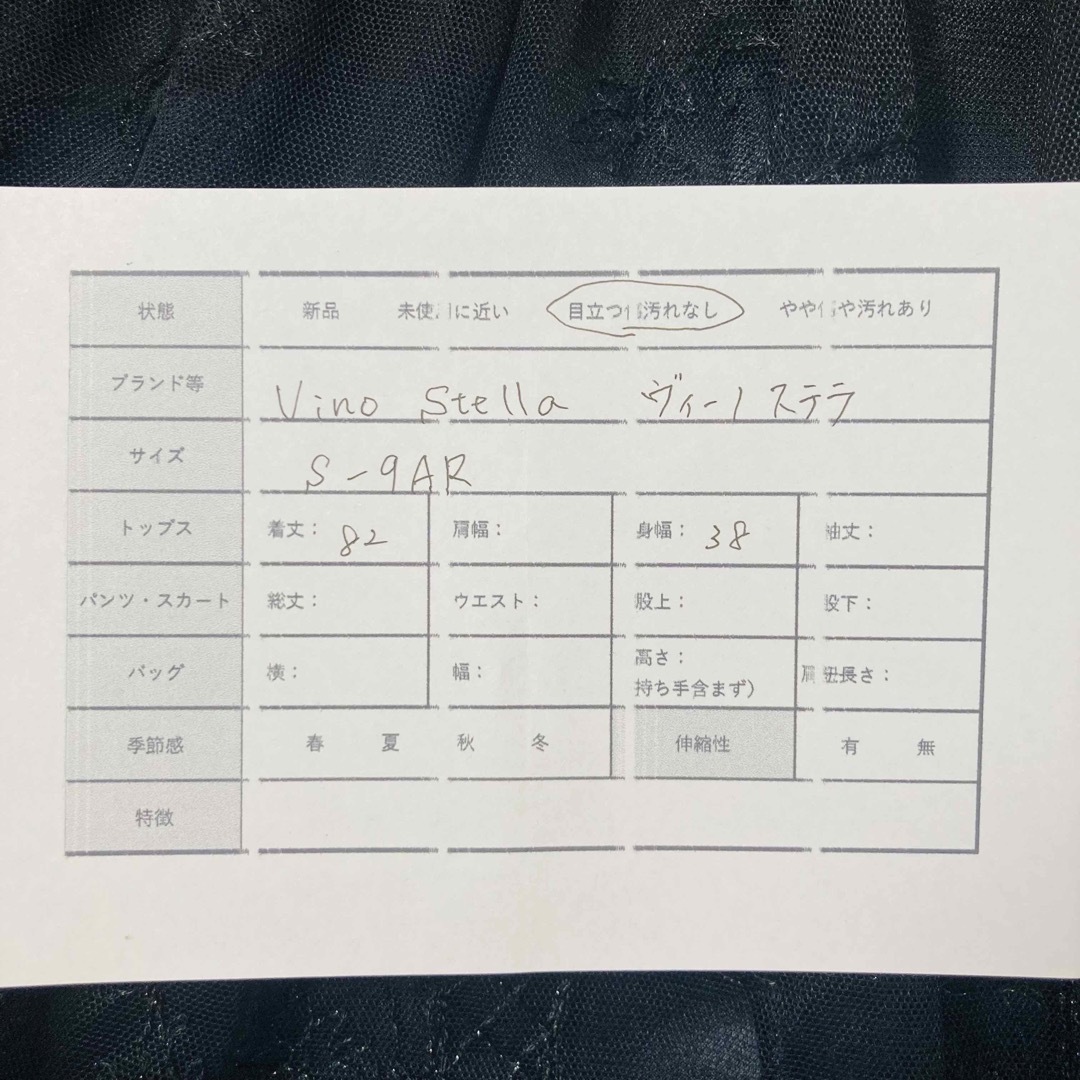 状態 新品 未使用に近い 目立つ傷汚れなし やや傷や汚れあり
ブランド等 Vino Stella ヴィーノステラ
サイズ S-9AR
トップス 着丈： 82 肩幅： 身幅： 38 袖丈：
パンツ・スカート 総丈： ウエスト： 股上： 股下：
バッグ 横： 幅： 高さ： 肩紐長さ：
持ち手含まず）
季節感 春 夏 秋 冬 伸縮性 有 無
特徴